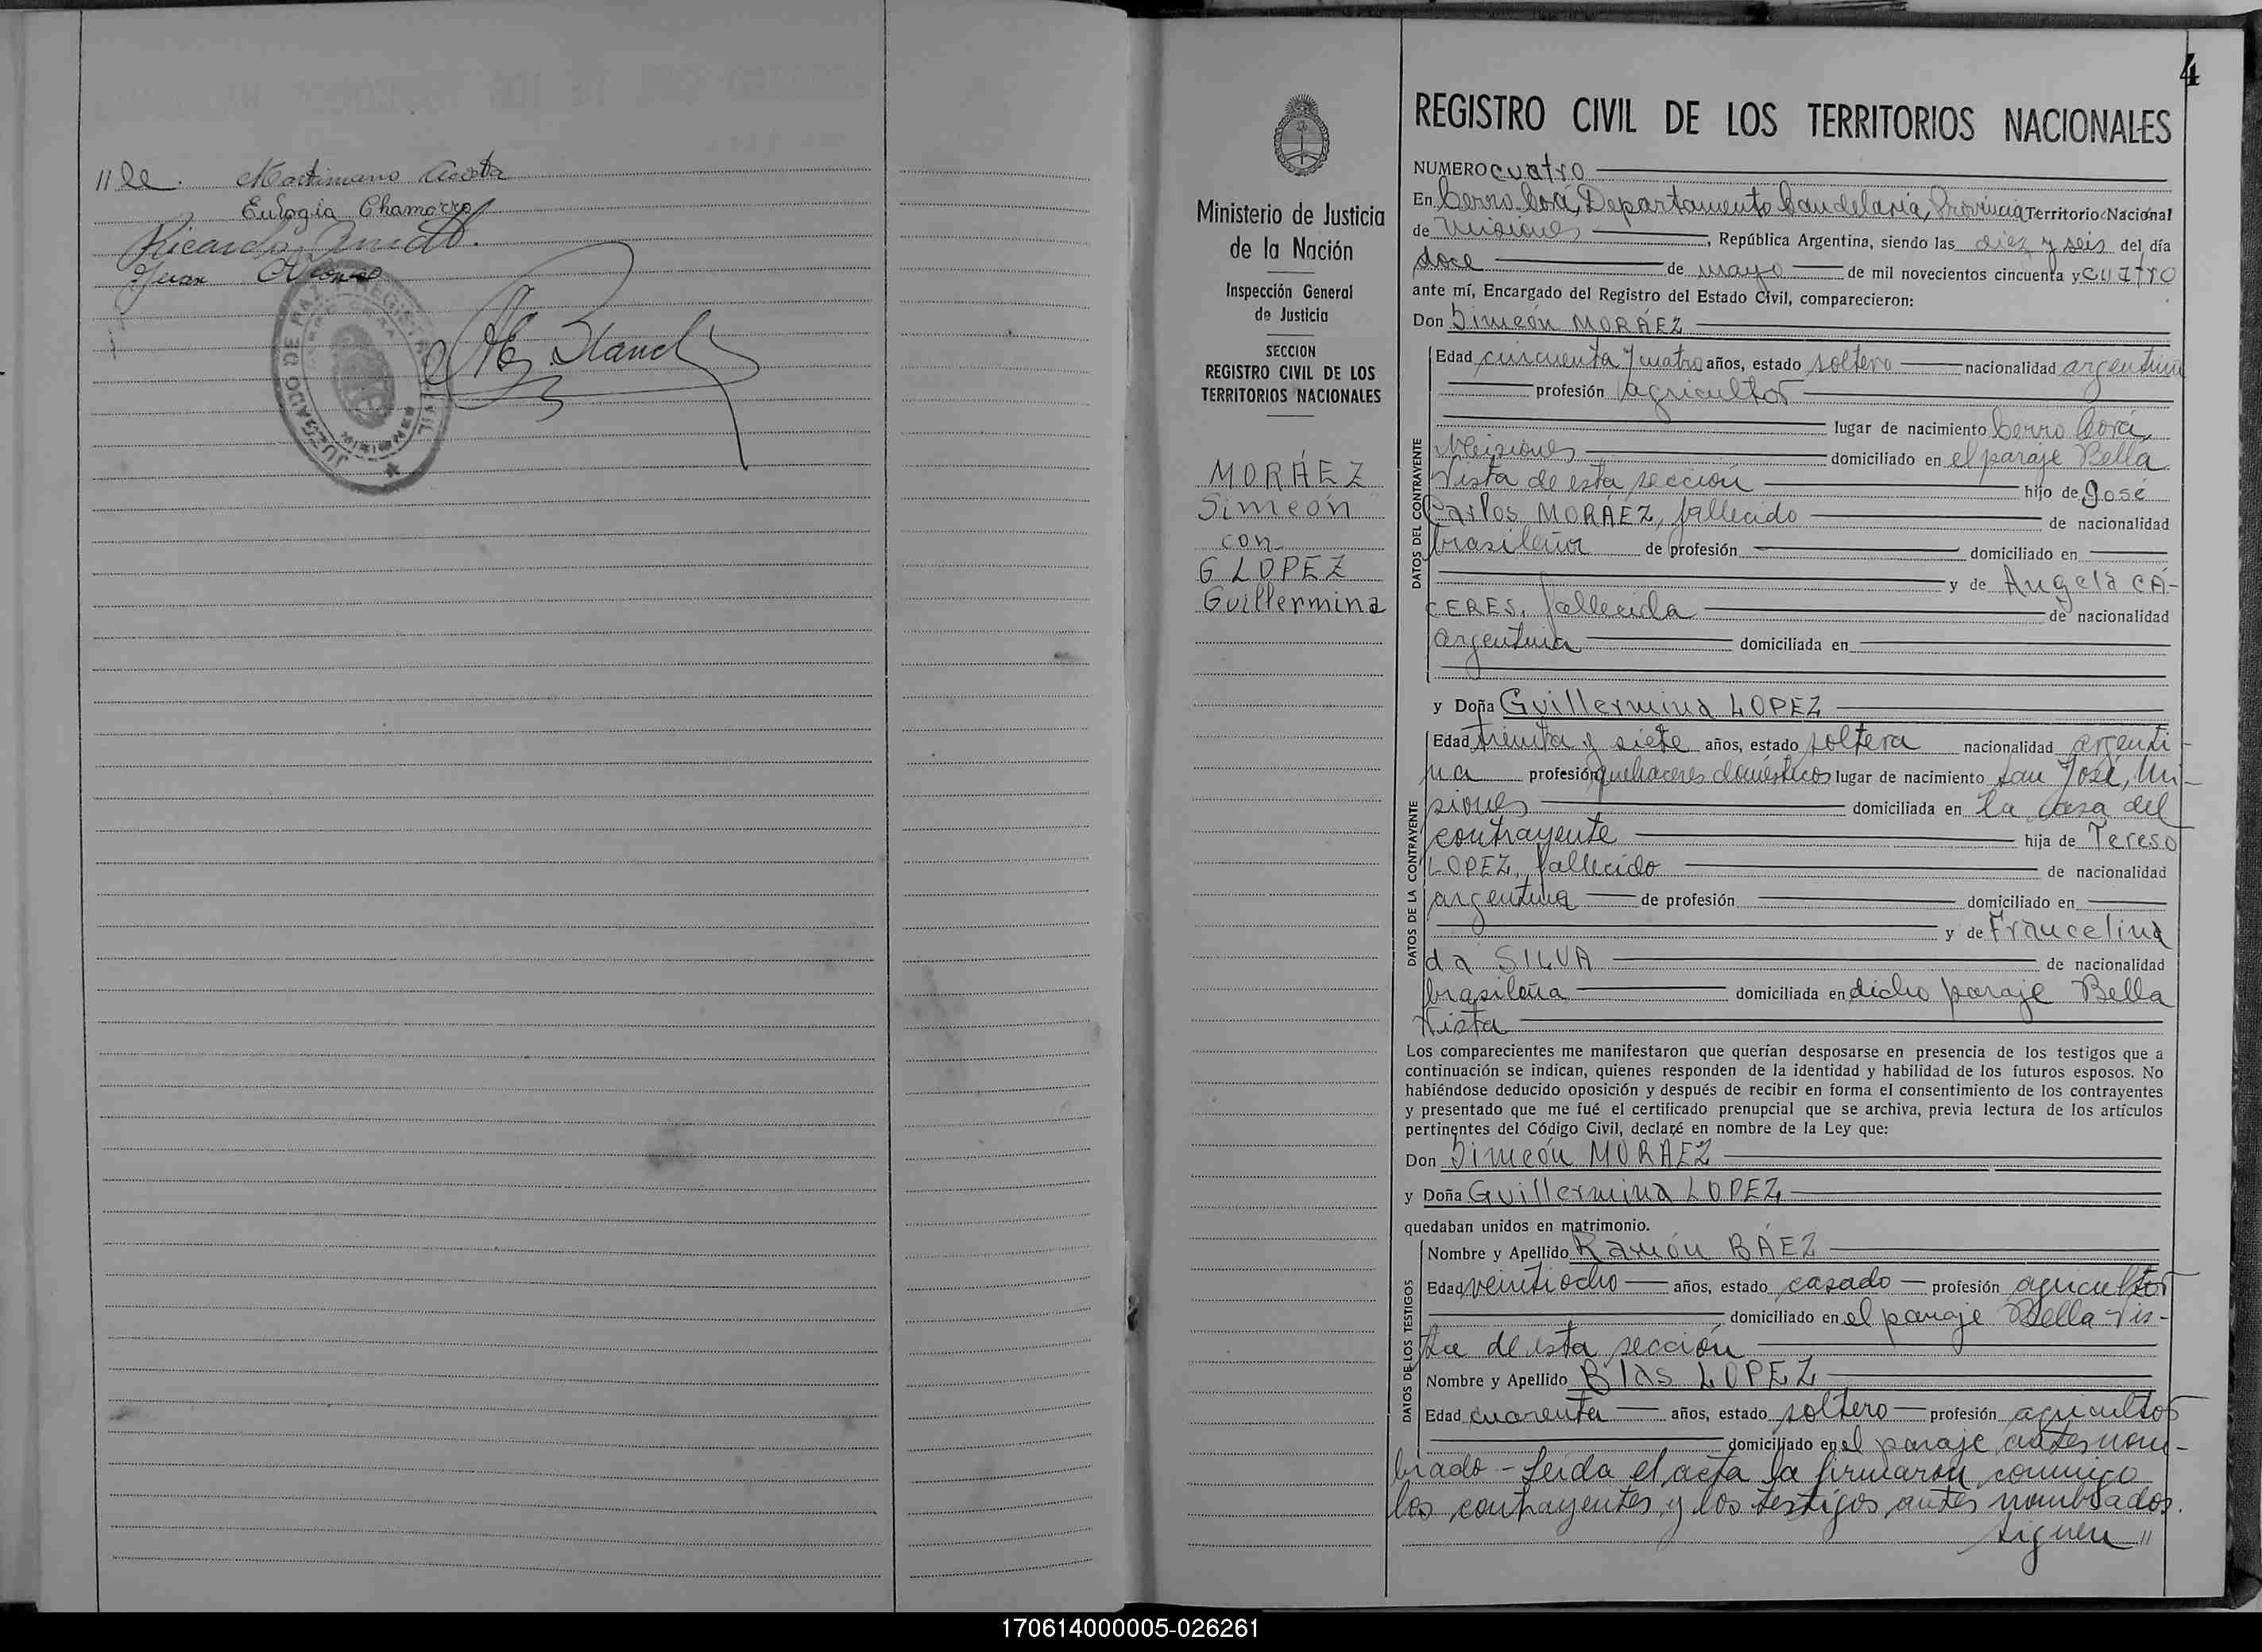 Martimiano Acosta
Eulogia Chamorro
Ricardo
Juan
JUZGADO DE PAZ
4
REGISTRO CIVIL DE LOS TERRITORIOS NACIONALES
Ministerio de Justicia
de la Nación
Inspección General
de Justicia
SECCION
REGISTRO CIVIL DE LOS
TERRITORIOS NACIONALES
MORÁEZ
Simeón
con
G LOPEZ
Guillermina
NUMERO cuatro
En Cerro Corá, Departamento Candelaria, Provincia Territorio Nacional
de Misiones, República Argentina, siendo las diez y seis del día
doce de mayo de mil novecientos cincuenta y cuatro
ante mí, Encargado del Registro del Estado Civil, comparecieron:
Don Simeón MORÁEZ
DATOS DEL CONTRAYENTE
Edad cincuenta y cuatro años, estado soltero nacionalidad argentina
profesión agricultor
lugar de nacimiento Cerro Corá,
Misiones domiciliado en el paraje Bella
Vista de esta sección hijo de José
Carlos MORÁEZ, fallecido de nacionalidad
brasileña de profesión domiciliado en
y de Angela CÁ-
CERES, fallecida de nacionalidad
argentina domiciliada en
y Doña Guillermina LOPEZ
DATOS DE LA CONTRAYENTE
Edad treinta y siete años, estado soltera nacionalidad argenti-
na profesión quehaceres domésticos lugar de nacimiento San José, Mi-
siones domiciliada en la casa del
contrayente hija de Tereso
LOPEZ, fallecido de nacionalidad
argentina de profesión domiciliado en
y de Francelina
da SILVA de nacionalidad
brasileña domiciliada en dicho paraje Bella
Vista
Los comparecientes me manifestaron que querían desposarse en presencia de los testigos que a
continuación se indican, quienes responden de la identidad y habilidad de los futuros esposos. No
habiéndose deducido oposición y después de recibir en forma el consentimiento de los contrayentes
y presentado que me fué el certificado prenupcial que se archiva, previa lectura de los artículos
pertinentes del Código Civil, declaré en nombre de la Ley que:
Don Simeón MORAEZ
y Doña Guillermina LOPEZ
quedaban unidos en matrimonio.
DATOS DE LOS TESTIGOS
Nombre y Apellido Ramón BÁEZ
Edad veintiocho años, estado casado profesión agricultor
domiciliado en el paraje Bella Vis-
ta de esta sección
Nombre y Apellido Blas LOPEZ
Edad cuarenta años, estado soltero profesión agricultor
domiciliado en el paraje antes nom-
brado - Leida el acta la firmaron conmigo
los contrayentes y los testigos antes nombrados.
siguen //
170614000005-026261